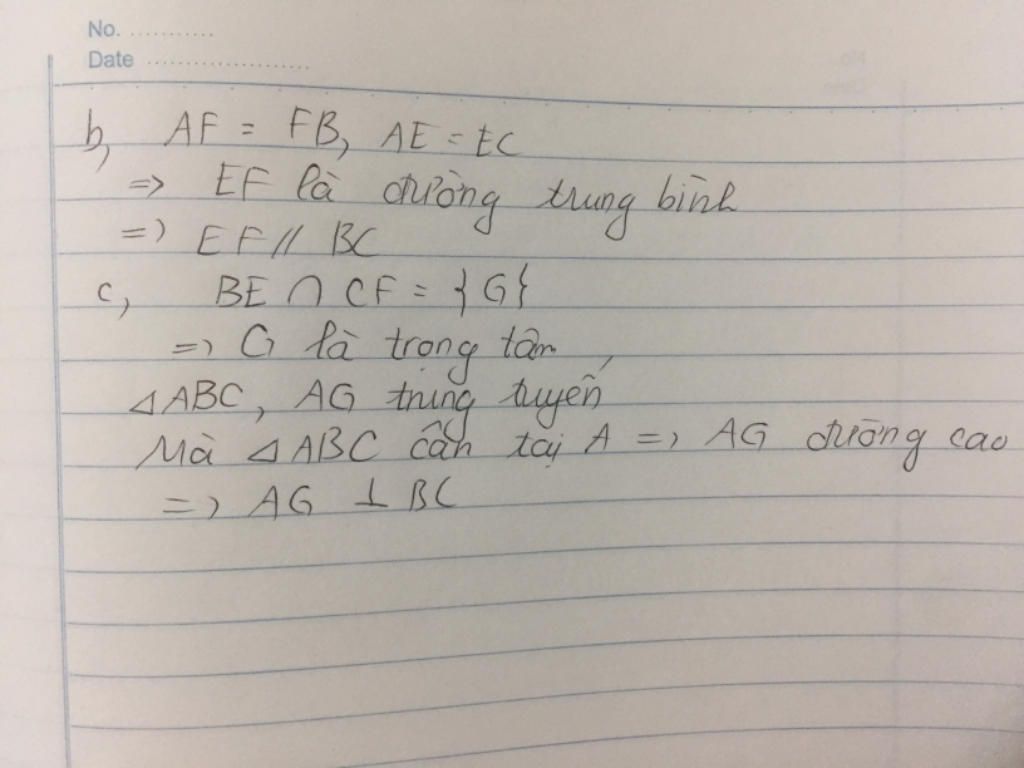 No. ............
Date .......................
b, AF = FB, AE = EC
=> EF là đường trung bình
=> EF // BC
c, BE ∩ CF = {G}
=> G là trọng tâm
⊿ABC, AG trung tuyến
Mà ⊿ABC cân tại A => AG đường cao
=> AG ⊥ BC